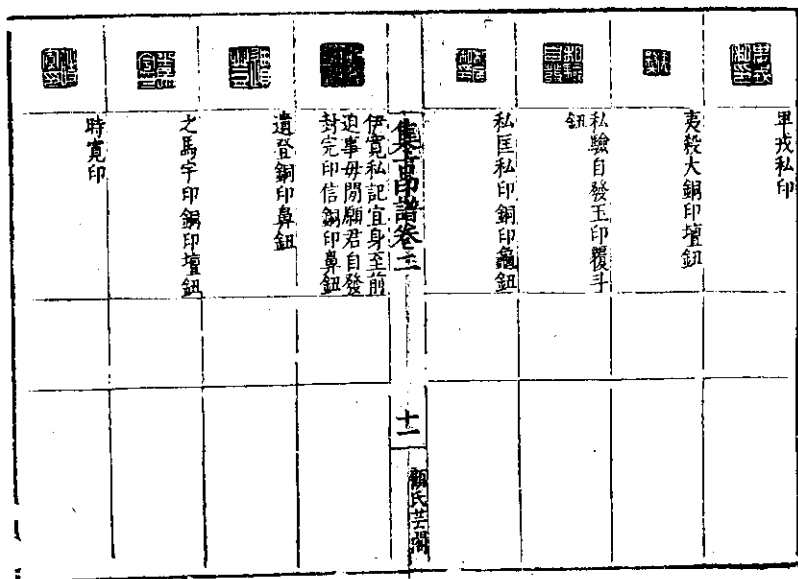 卑戎私印
夷殺大銅印壇鈕
私驗自發玉印覆斗
鈕
私匡私印銅印龜鈕
集古印譜卷二
十一
顧氏芸閣
伊寬私記宜身至前
迫事毋閒願君自發
封完印信銅印鼻鈕
遺登銅印鼻鈕
之馬字印銅印壇鈕
時寬印